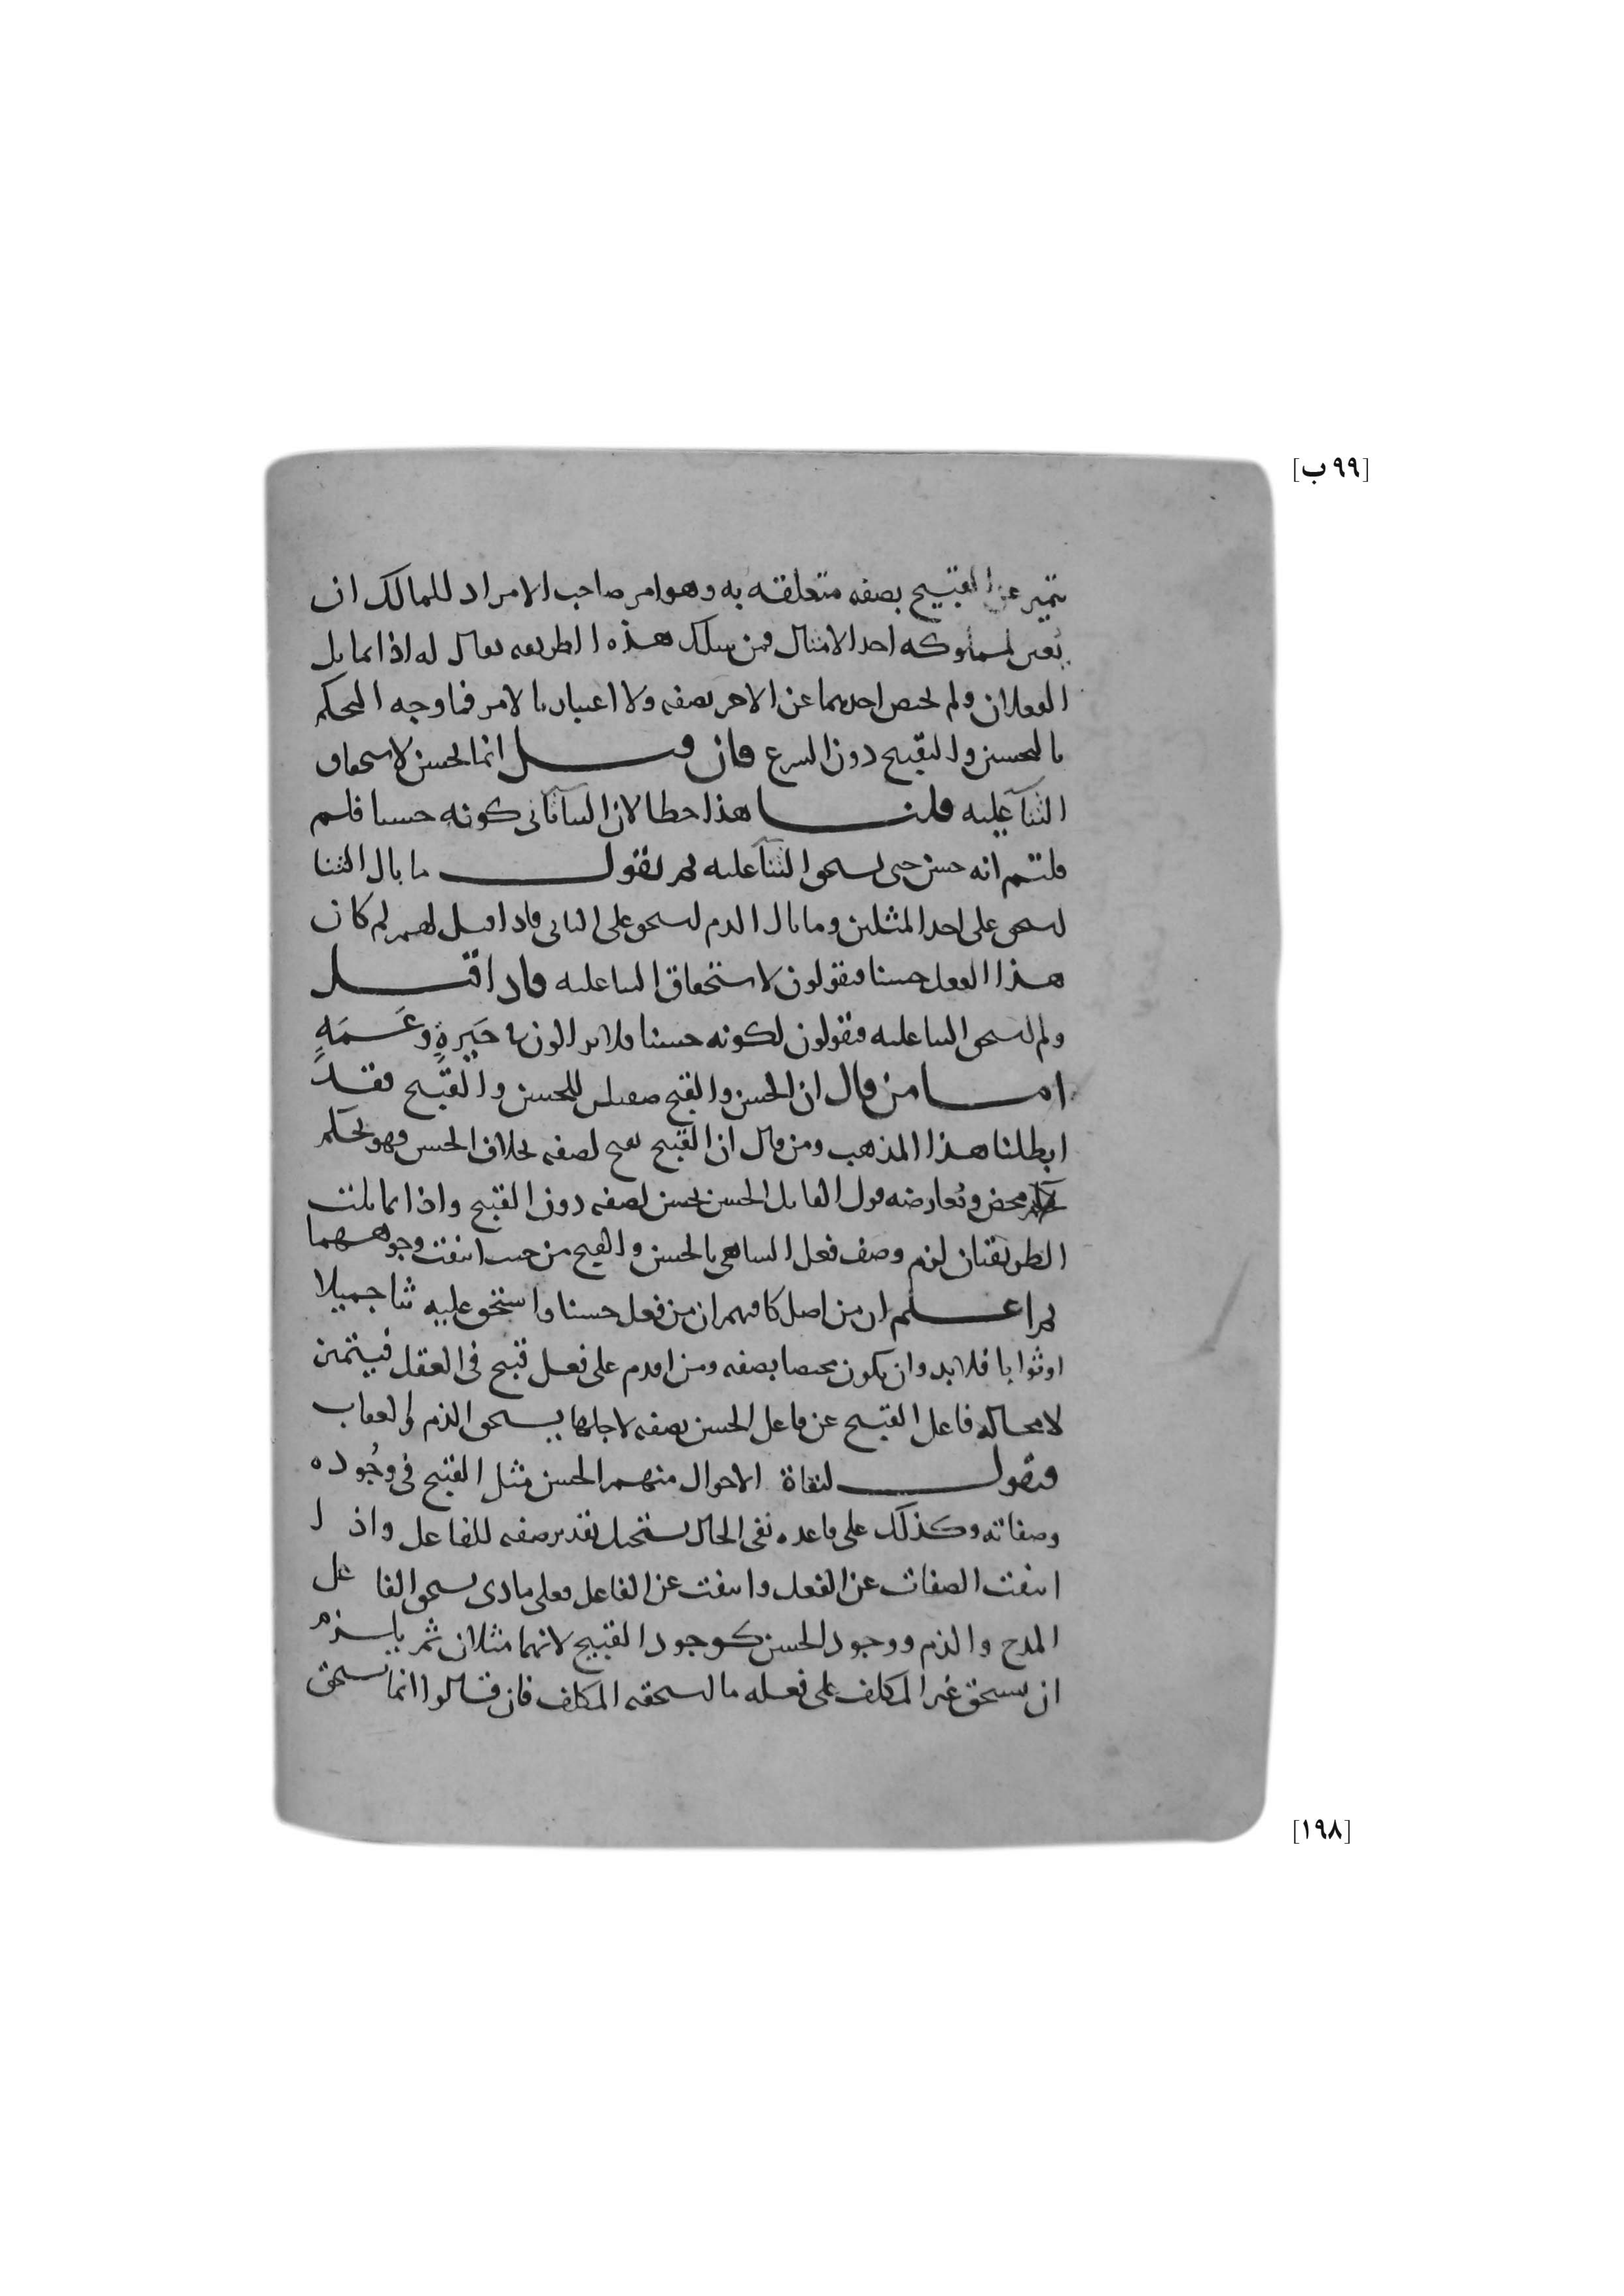 [٩٩ ب]
يتميز عن القبيح بصفه متعلقه به وهو امر صاحب الامر اذ للمالك ان
لمملوكه احد الامثال فمن سلك هذه الطريقه يقال له اذا تماثل
الفعلان ولم يختص احدهما عن الاخر بصفه ولا اعتبار بالامر فما وجه التحكم
بالتحسين والتقبيح دون الشرع فان قيل انما يحسن لاستحقاق
الثنآ عليه قلنا هذا خطا لان الثنآ ثانى كونه حسنا فلم
قلتم انه حسن حتى يستحق الثنآ عليه ثم نقول ما بال الثنا
يستحق على احد المثلين وما بال الذم يستحق على الثانى فاذا قيل لهم لم كان
هذا الفعل حسنا فيقولون لاستحقاق الثنا عليه فاذا قيل
ولم يستحق الثنا عليه فيقولون لكونه حسنا فلا يزالون فى حَيرةٍ وعَمَهٍ
اما من قال ان الحسن والقبح صفتان للحسن والقبيح فقد
ابطلنا هذا المذهب ومن قال ان القبيح يقبح لصفه بخلاف الحسن فهو تحكم
محض وتعارضه قول القايل الحسن يحسن لصفه دون القبيح واذا تماثلت
الطريقتان لزم وصف فعل الساهى بالحسن والقبح من حيث انتفت وجوههما
ثم اعلم ان من اصل كافتهم ان من فعل حسنا واستحق عليه ثنا جميلا
او ثوابا فلا بد وان يكون مختصا بصفه ومن اقدم على فعل قبيح فى العقل فيتميز
لا محاله فاعل القبيح عن فاعل الحسن بصفه لاجلها يستحق الذم والعقاب
فنقول لنفاة الاحوال منهم الحسن مثل القبيح فى وجُوده
وصفاته وكذلك على قاعده نفى الحال يستحيل تقدير صفه للفاعل واذا
انتفت الصفات عن الفعل وانتفت عن الفاعل فعلى ماذى يستحق الفاعل
المدح والذم ووجود الحسن كوجود القبيح لانهما مثلان ثم يلزم
ان يستحق غير المكلف على فعله ما يستحقه المكلف فان قالوا انما يستحق
[١٩٨]